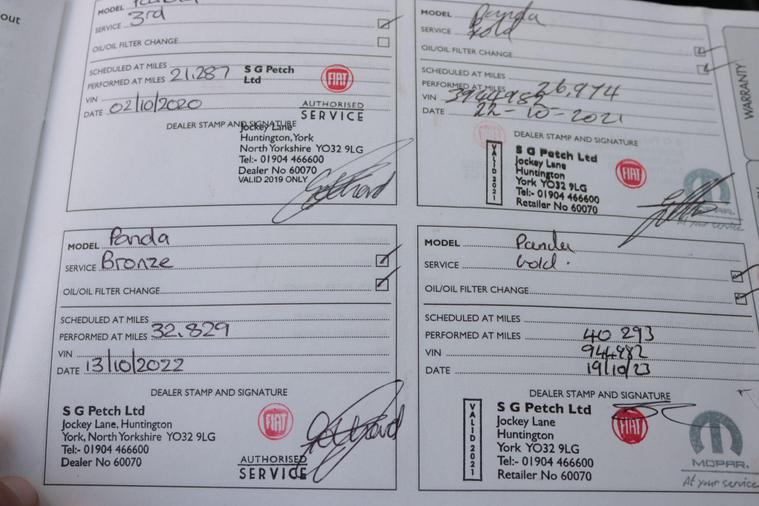 out
MODEL Panda
SERVICE 3rd
OIL/OIL FILTER CHANGE
SCHEDULED AT MILES
PERFORMED AT MILES 21,287
VIN
DATE 02/10/2020
S G Petch
Ltd
FIAT
AUTHORISED
SERVICE
DEALER STAMP AND SIGNATURE
Jockey Lane
Huntington, York
North Yorkshire YO32 9LG
Tel:- 01904 466600
Dealer No 60070
VALID 2019 ONLY
MODEL Panda
SERVICE Gold
OIL/OIL FILTER CHANGE
SCHEDULED AT MILES
PERFORMED AT MILES 26,974
VIN 3944982
DATE 22-10-2021
DEALER STAMP AND SIGNATURE
VALID 2021
S G Petch Ltd
Jockey Lane
Huntington
York YO32 9LG
Tel:- 01904 466600
Retailer No 60070
FIAT
MOPAR
At your service
WARRANTY
MODEL Panda
SERVICE Bronze
OIL/OIL FILTER CHANGE
SCHEDULED AT MILES
PERFORMED AT MILES 32,829
VIN
DATE 13/10/2022
DEALER STAMP AND SIGNATURE
S G Petch Ltd
Jockey Lane, Huntington
York, North Yorkshire YO32 9LG
Tel:- 01904 466600
Dealer No 60070
FIAT
AUTHORISED
SERVICE
MODEL Panda
SERVICE Gold.
OIL/OIL FILTER CHANGE
SCHEDULED AT MILES
PERFORMED AT MILES 40 293
VIN 944982
DATE 19/10/23
DEALER STAMP AND SIGNATURE
VALID 2021
S G Petch Ltd
Jockey Lane
Huntington
York YO32 9LG
Tel:- 01904 466600
Retailer No 60070
FIAT
MOPAR.
At your service